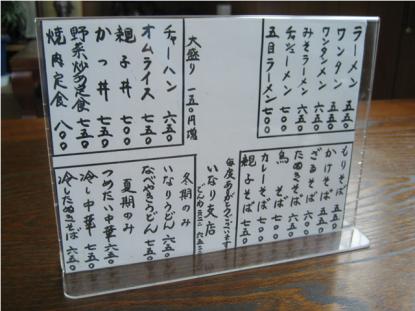 ラーメン 五五〇
ワンタン 五五〇
ワンタンメン 六五〇
みそラーメン 六五〇
チャシューメン 七五〇
五目ラーメン 七〇〇
大盛り 一五〇円増
チャーハン 六五〇
オムライス 七五〇
親子丼 七〇〇
かつ丼 七五〇
野菜炒め定食 七五〇
焼肉定食 八〇〇
もりそば 五五〇
かけそば 五五〇
ざるそば 六五〇
たぬきそば 六五〇
鳥そば 七〇〇
カレーそば 七五〇
親子そば 七五〇
毎度ありがとうございます
いなり支店
冬期のみ
いなりうどん 六五〇
なべやきうどん 七五〇
夏期のみ
つめたい中華 六五〇
冷し中華 七五〇
冷したぬきそば 六五〇